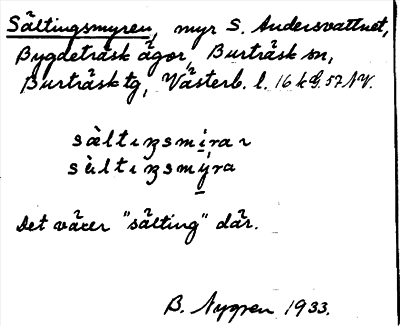 Sältingsmyren, myr S. Andersvattnet,
Bygdeträsk ägor, Burträsk sn,
Burträsk tg, Västerb. l. 16 k G. 57 NV.
sàltıŋsmı̣raı
sàltıŋsmy̱ra
Det växer "sälting" där.
B. Nygren 1933.